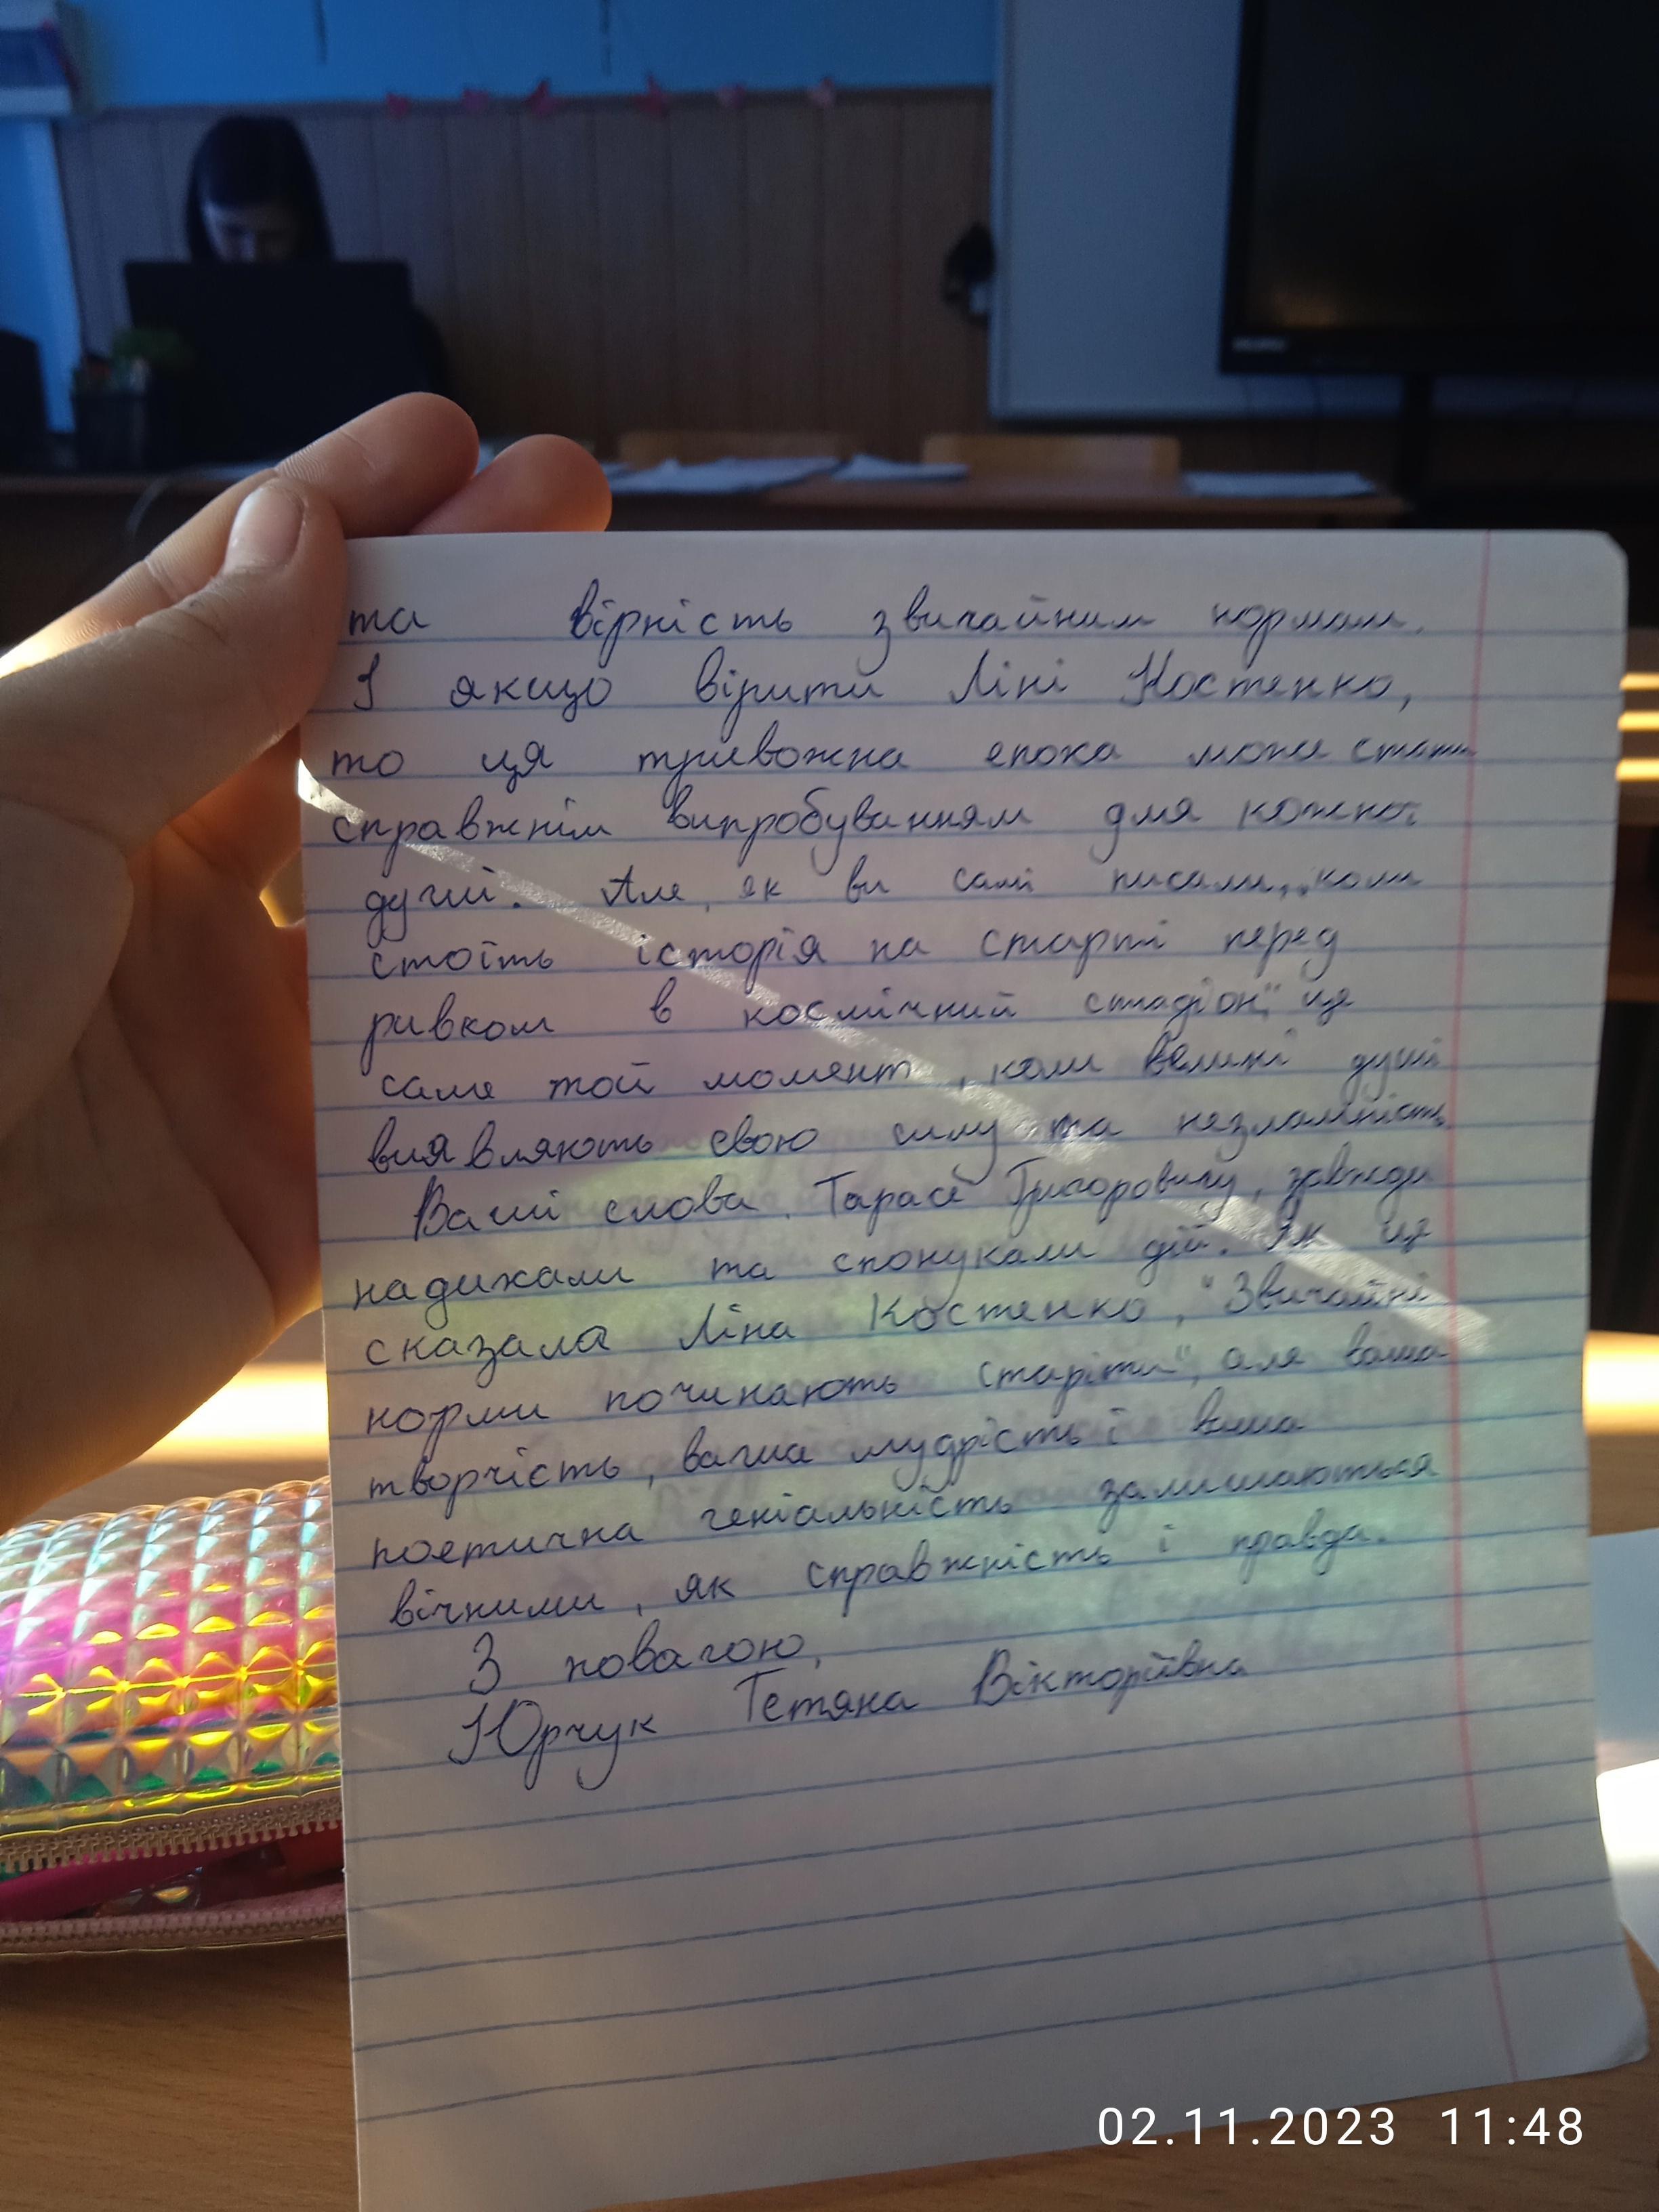 та вірність звичайним нормам.
І якщо вірити Ліні Костенко,
то ця тривожна епоха може стати
справжнім випробуванням для кожної
душі. Але, як ви самі писали, „коли
стоїть історія на старті перед
ривком в космічний стадіон", це
саме той момент, коли великі душі
виявляють свою силу та незламність.
Ваші слова, Тарасе Григоровичу, завжди
надихали та спонукали дій. Як це
сказала Ліна Костенко, "Звичайні
норми починають старіти", але ваша
творчість, ваша мудрість і ваша
поетична геніальність залишаються
вічними, як справжність і правда.
З повагою,
Юрчук Тетяна Вікторіївна
02.11.2023 11:48